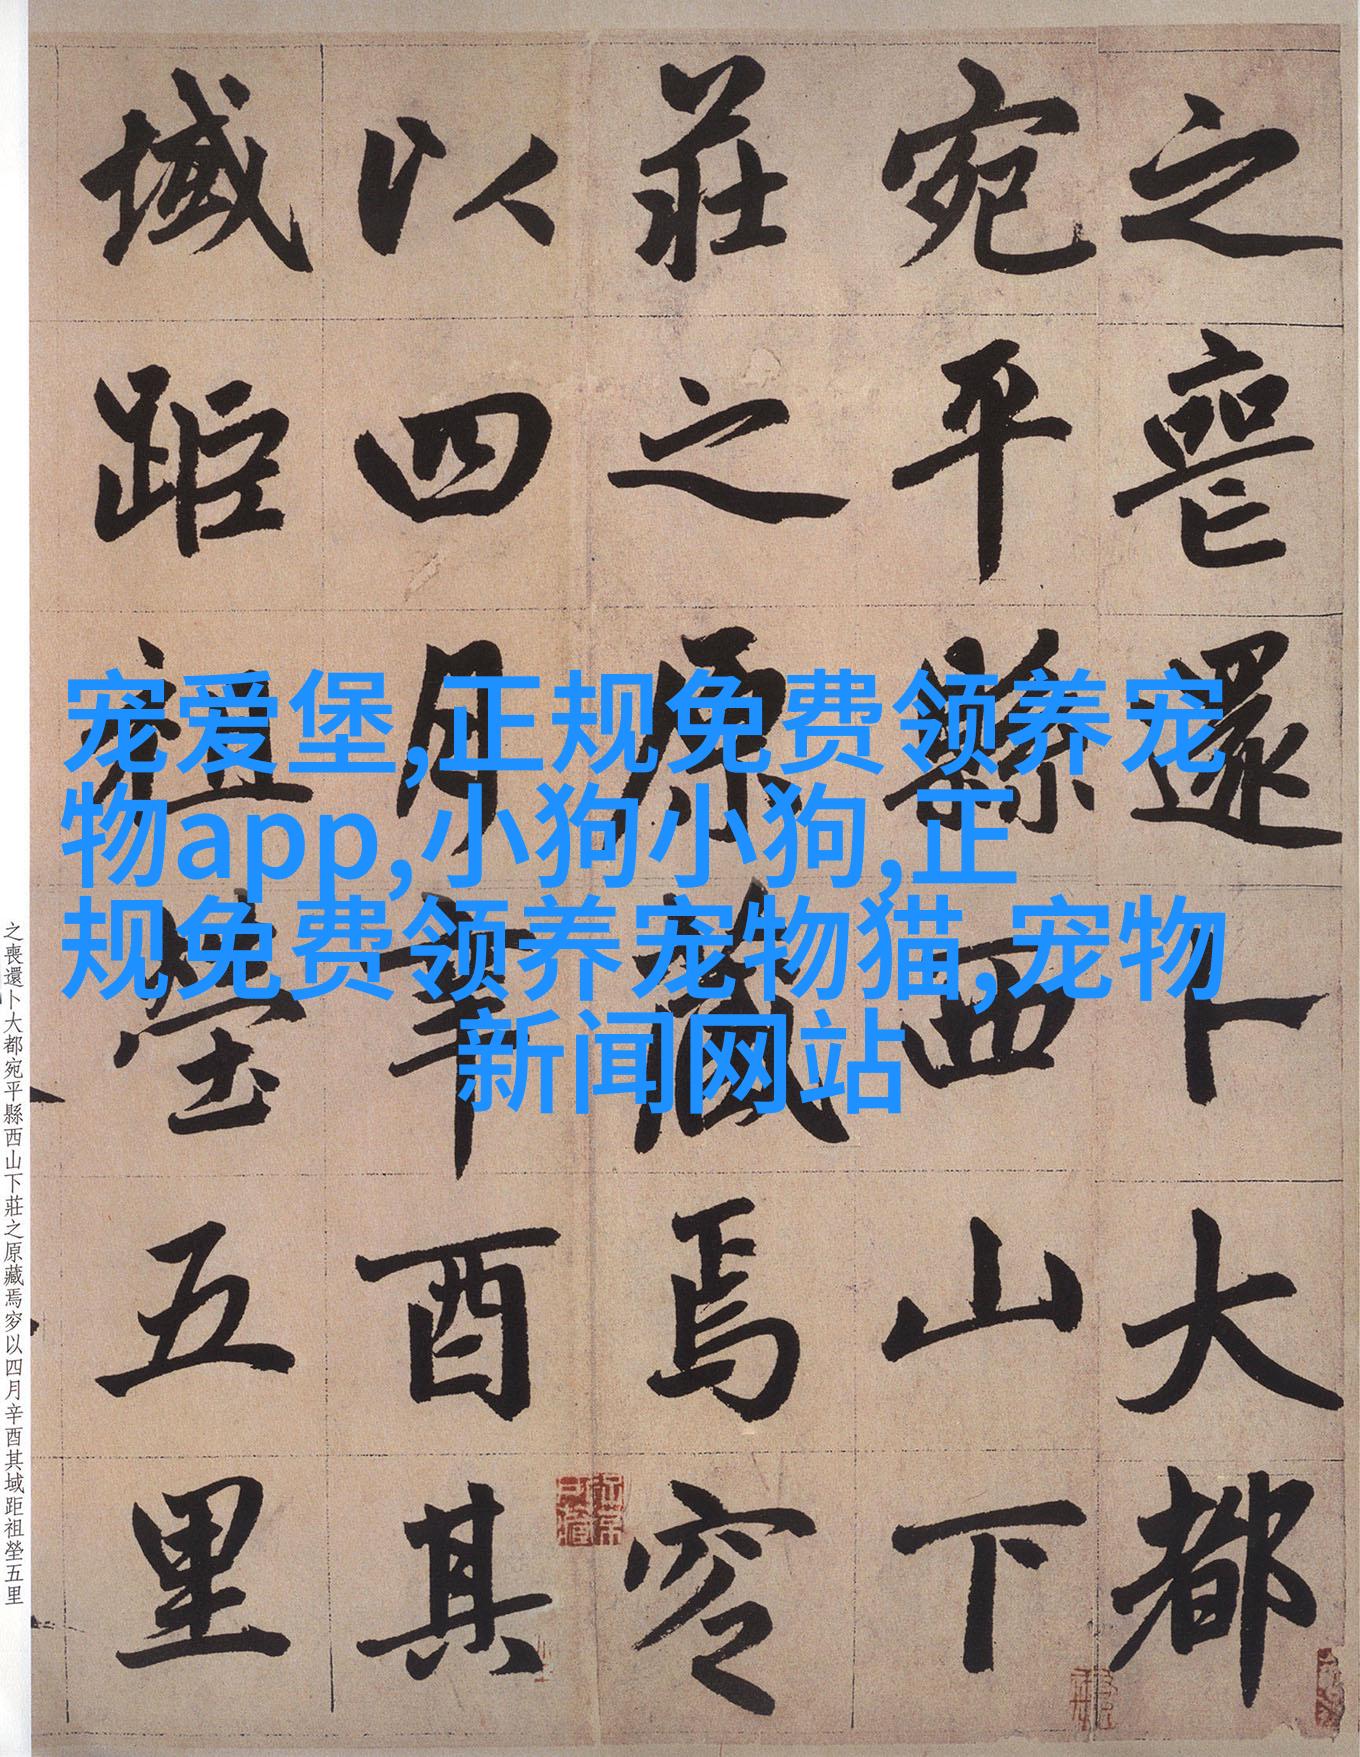 之喪還卜大都
宛平縣西山下
莊之原藏焉窆
以四月辛酉其
域距祖塋五里
宠爱堡,正规免费领养宠
物app,小狗小狗,正
规免费领养宠物猫,宠物
新闻网站
之喪還卜大都宛平縣西山下莊之原藏焉窆以四月辛酉其域距祖塋五里